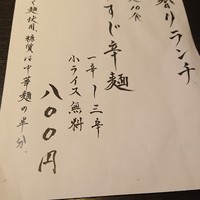 祭りランチ
限定10食
すじ辛麺
一辛〜三辛
小ライス無料
八〇〇円
く麺使用、糖質は中華麺の半分。